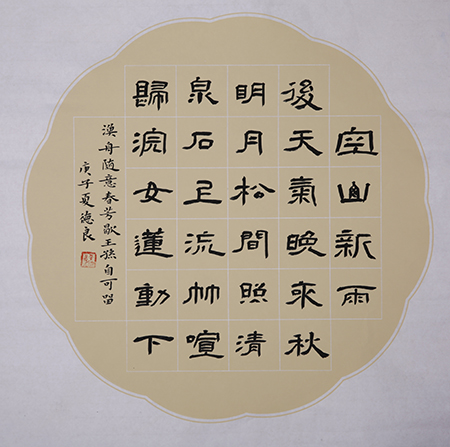 空山新雨
後天氣晚來秋
明月松間照清
泉石上流竹喧
歸浣女蓮動下
漁舟隨意春芳歇王孫自可留
庚子夏德良